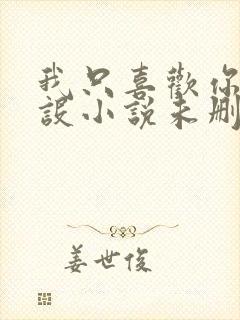 我只喜歡你
設小說未刪
姜世俊